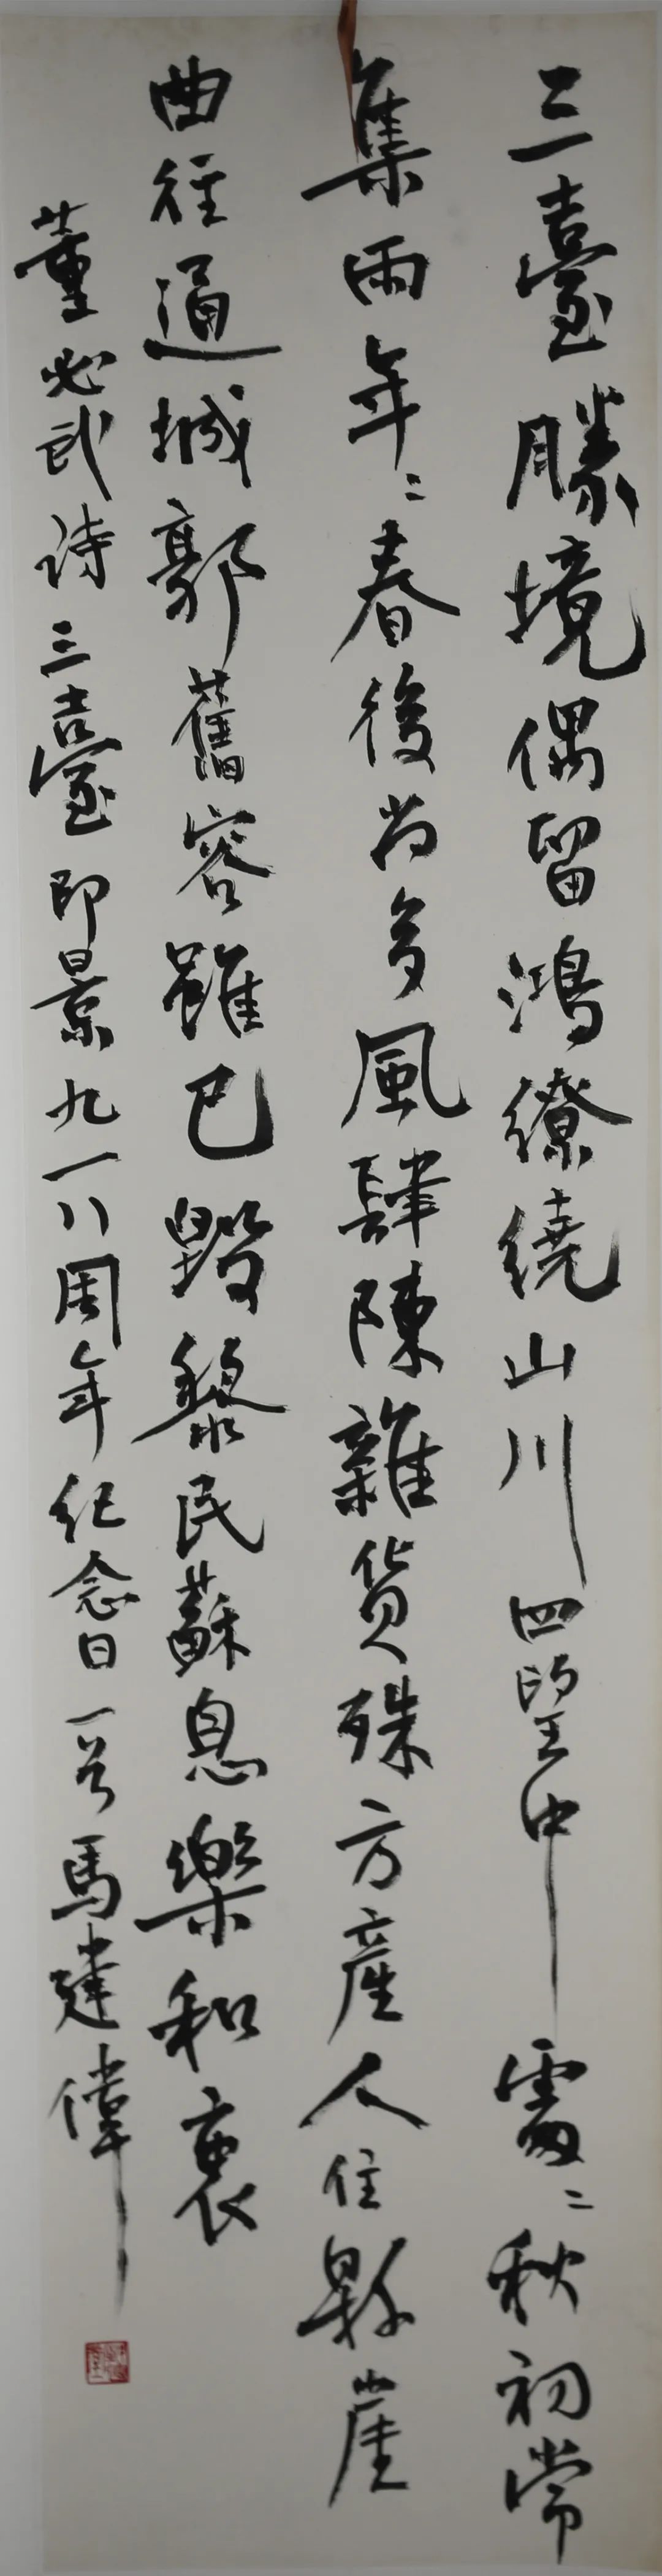 三臺勝境偶留鴻繚繞山川四望中〻秋初常
集雨年〻春後尚多風肆陳雜貨殊方產人住縣崖
曲徑通城郭舊容雖已毀黎民蘇息樂和衷
董必武詩三臺即景九一八周年纪念日一兮馬建偉